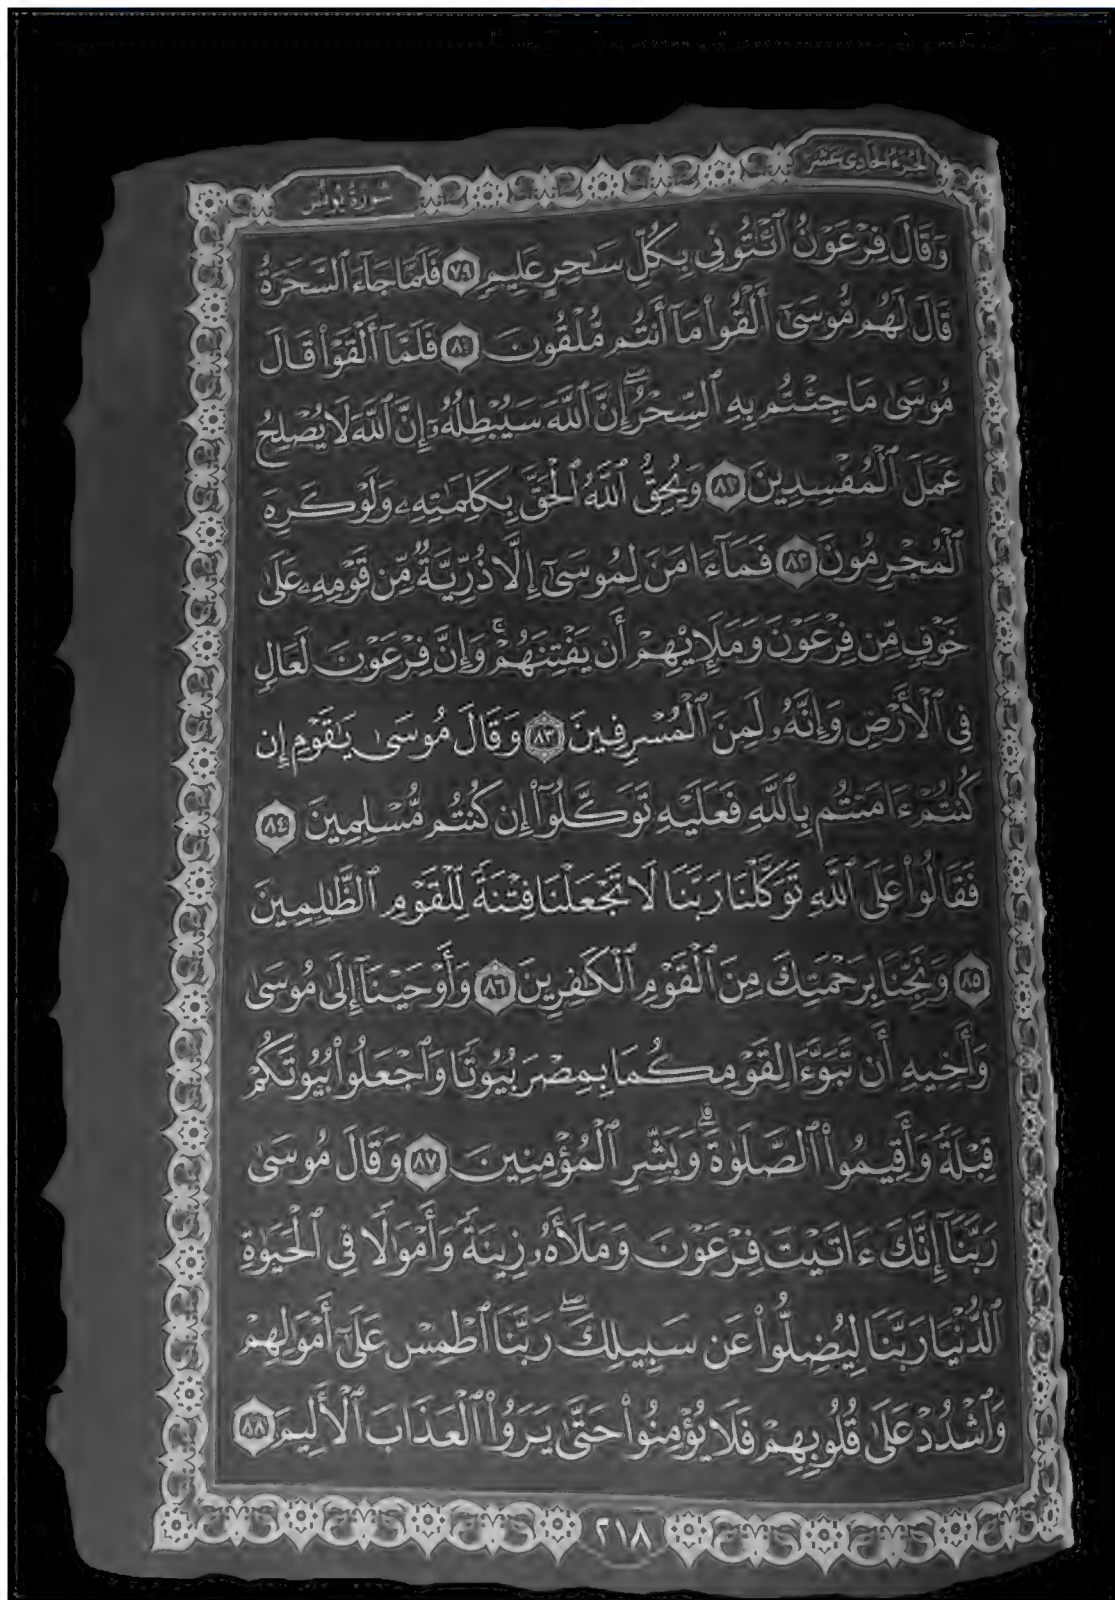 الجزء الحادي عشر
سورة يونس
وَقَالَ فِرْعَوْنُ ٱئْتُونِي بِكُلِّ سَٰحِرٍ عَلِيمٍ ٧٩ فَلَمَّا جَآءَ ٱلسَّحَرَةُ
قَالَ لَهُم مُّوسَىٰٓ أَلْقُوا۟ مَآ أَنتُم مُّلْقُونَ ٨٠ فَلَمَّآ أَلْقَوْا۟ قَالَ
مُوسَىٰ مَا جِئْتُم بِهِ ٱلسِّحْرُۖ إِنَّ ٱللَّهَ سَيُبْطِلُهُۥٓ إِنَّ ٱللَّهَ لَا يُصْلِحُ
عَمَلَ ٱلْمُفْسِدِينَ ٨١ وَيُحِقُّ ٱللَّهُ ٱلْحَقَّ بِكَلِمَٰتِهِۦ وَلَوْ كَرِهَ
ٱلْمُجْرِمُونَ ٨٢ فَمَآ ءَامَنَ لِمُوسَىٰٓ إِلَّا ذُرِّيَّةٌ مِّن قَوْمِهِۦ عَلَىٰ
خَوْفٍ مِّن فِرْعَوْنَ وَمَلَإِيْهِمْ أَن يَفْتِنَهُمْۚ وَإِنَّ فِرْعَوْنَ لَعَالٍ
فِي ٱلْأَرْضِ وَإِنَّهُۥ لَمِنَ ٱلْمُسْرِفِينَ ٨٣ وَقَالَ مُوسَىٰ يَٰقَوْمِ إِن
كُنتُمْ ءَامَنتُم بِٱللَّهِ فَعَلَيْهِ تَوَكَّلُوٓا۟ إِن كُنتُم مُّسْلِمِينَ ٨٤
فَقَالُوا۟ عَلَى ٱللَّهِ تَوَكَّلْنَا رَبَّنَا لَا تَجْعَلْنَا فِتْنَةً لِّلْقَوْمِ ٱلظَّٰلِمِينَ
٨٥ وَنَجِّنَا بِرَحْمَتِكَ مِنَ ٱلْقَوْمِ ٱلْكَٰفِرِينَ ٨٦ وَأَوْحَيْنَآ إِلَىٰ مُوسَىٰ
وَأَخِيهِ أَن تَبَوَّءَا لِقَوْمِكُمَا بِمِصْرَ بُيُوتًا وَٱجْعَلُوا۟ بُيُوتَكُمْ
قِبْلَةً وَأَقِيمُوا۟ ٱلصَّلَوٰةَۗ وَبَشِّرِ ٱلْمُؤْمِنِينَ ٨٧ وَقَالَ مُوسَىٰ
رَبَّنَآ إِنَّكَ ءَاتَيْتَ فِرْعَوْنَ وَمَلَأَهُۥ زِينَةً وَأَمْوَٰلًا فِي ٱلْحَيَوٰةِ
ٱلدُّنْيَا رَبَّنَا لِيُضِلُّوا۟ عَن سَبِيلِكَۖ رَبَّنَا ٱطْمِسْ عَلَىٰٓ أَمْوَٰلِهِمْ
وَٱشْدُدْ عَلَىٰ قُلُوبِهِمْ فَلَا يُؤْمِنُوا۟ حَتَّىٰ يَرَوُا۟ ٱلْعَذَابَ ٱلْأَلِيمَ ٨٨
٢١٨